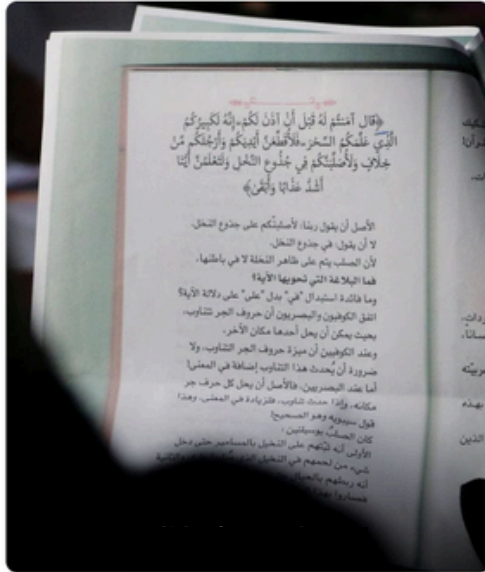 ﴿قال آمَنتُمْ لَهُ قَبْلَ أَنْ آذَنَ لَكُمْ ـ إِنَّهُ لَكَبِيرُكُمُ
الَّذِي عَلَّمَكُمُ السِّحْرَ ـ فَلَأُقَطِّعَنَّ أَيْدِيَكُمْ وَأَرْجُلَكُم مِّنْ
خِلَافٍ وَلَأُصَلِّبَنَّكُمْ فِي جُذُوعِ النَّخْلِ وَلَتَعْلَمُنَّ أَيُّنَا
أَشَدُّ عَذَابًا وَأَبْقَىٰ﴾
الأصل أن يقول ربنا: لأصلبنّكم على جذوع النخل.
لا أن يقول: في جذوع النخل.
لأن الصلب يتم على ظاهر النخلة لا في باطنها.
فما البلاغة التي تحويها الآية؟
وما فائدة استبدال "في" بدل "على" على دلالة الآية؟
اتفق الكوفيون والبصريون أن حروف الجر تتناوب،
بحيث يمكن أن يحل أحدها مكان الآخر،
وعند الكوفيين أن ميزة حروف الجر التناوب، ولا
ضرورة أن يُحدث هذا التناوب إضافة في المعنى!
أما عند البصريين، فالأصل أن يحل كل حرف جر
مكانه، وإذا حدث تناوب، فلزيادة في المعنى، وهذا
قول سيبويه وهو الصحيح!
كان الصلب بوسيلتين:
الأولى أنه ثبّتهم على النخيل بالمسامير حتى دخل
شيء من لحمهم في النخيل الذي والثانية
أنه ربطهم بالحبال
فصاروا بهذا
ردات،
سانا،
بهذه
الذين